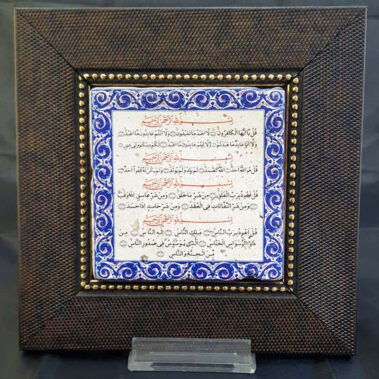 بسم الله الرحمن الرحيم
قل يا ايها الكافرون لا اعبد ما تعبدون ولا انتم عابدون ما اعبد
ولا انا عابد ما عبدتم ولا انتم عابدون ما اعبد لكم دينكم ولي دين
بسم الله الرحمن الرحيم
قل هو الله احد الله الصمد لم يلد ولم يولد ولم يكن له كفوا احد
بسم الله الرحمن الرحيم
قل اعوذ برب الفلق من شر ما خلق ومن شر غاسق اذا وقب
ومن شر النفاثات في العقد ومن شر حاسد اذا حسد
بسم الله الرحمن الرحيم
قل اعوذ برب الناس ملك الناس اله الناس من
شر الوسواس الخناس الذي يوسوس في صدور الناس
من الجنة والناس